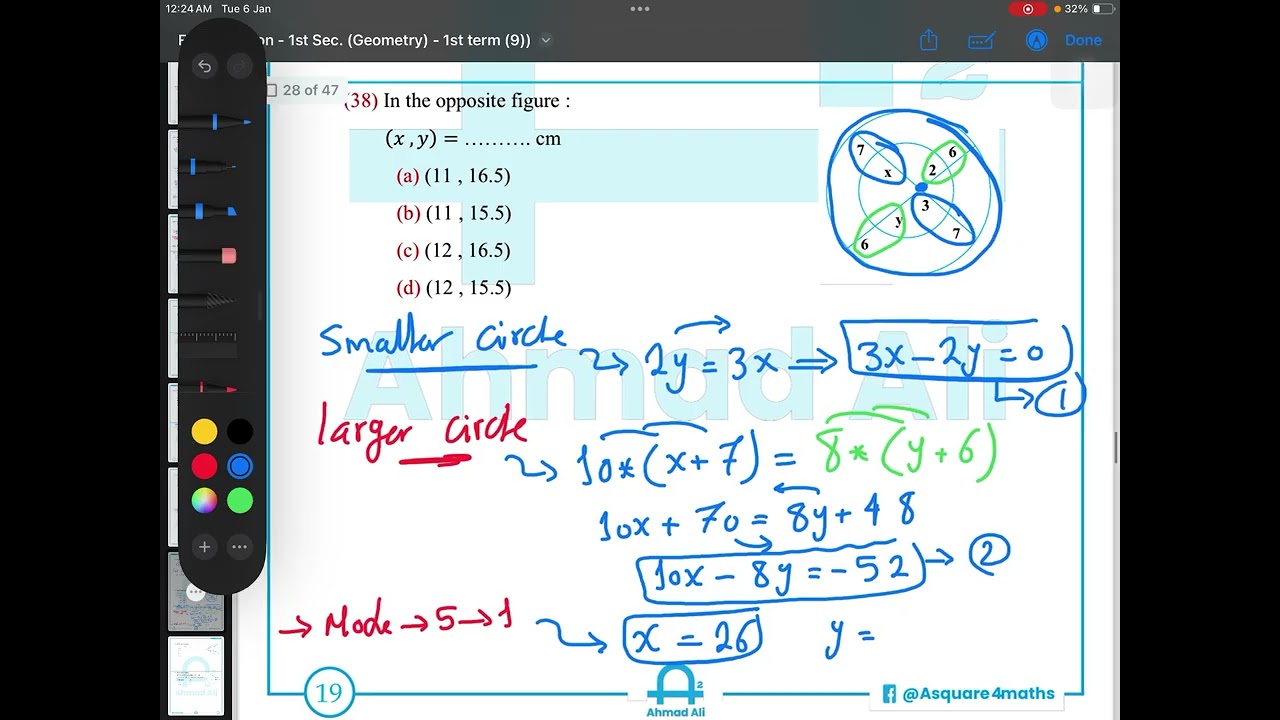 12:24 AM Tue 6 Jan
32%
on - 1st Sec. (Geometry) - 1st term (9))
Done
28 of 47
(38) In the opposite figure :
(x , y) = .......... cm
(a) (11 , 16.5)
(b) (11 , 15.5)
(c) (12 , 16.5)
(d) (12 , 15.5)
7
6
x
2
y
3
6
7
Smaller circle → 2y = 3x ⇒ 3x - 2y = 0
→ ①
larger circle
→ 10*(x+7) = 8*(y+6)
10x + 70 = 8y + 48
10x - 8y = -52 → ②
→ Mode → 5 → 1 → x = 26 y =
Ahmad Ali
19
A²
Ahmad Ali
@Asquare4maths